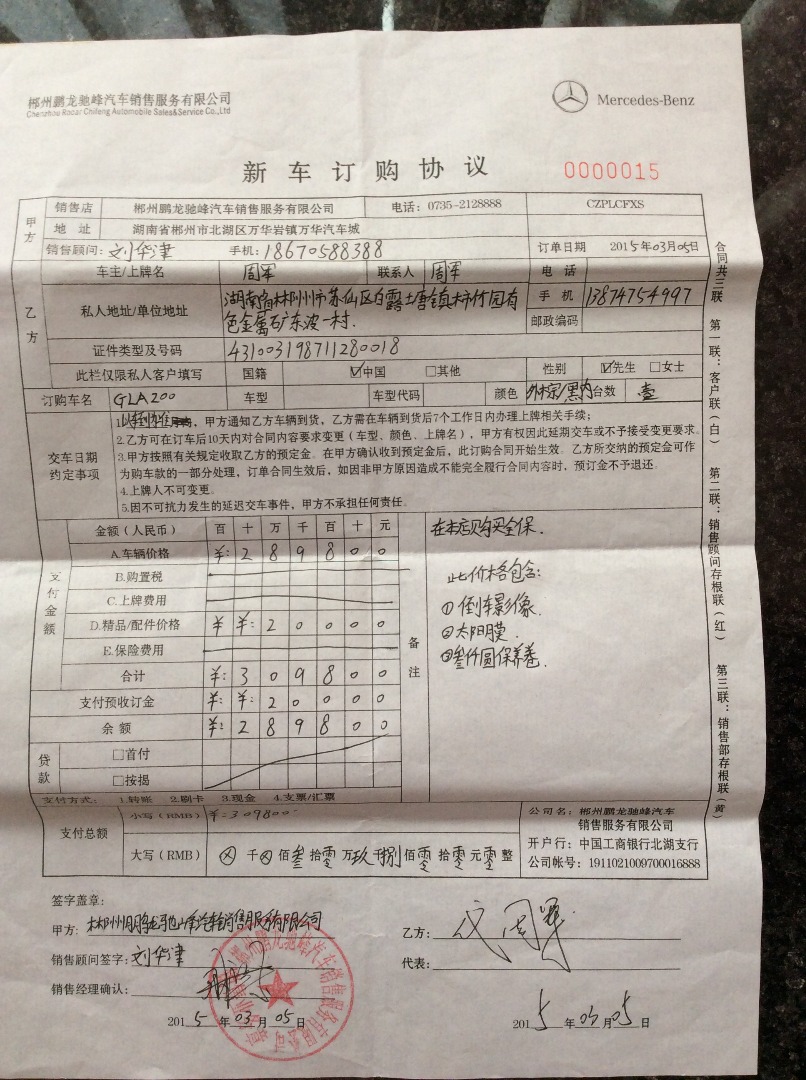 郴州鹏龙驰峰汽车销售服务有限公司
Chenzhou Rocar Chifeng Automobile Sales&Service Co.,Ltd
Mercedes-Benz
新车订购协议
0000015
甲方
销售店 郴州鹏龙驰峰汽车销售服务有限公司 电话：0735-2128888 CZPLCFXS
地 址 湖南省郴州市北湖区万华岩镇万华汽车城
销售顾问：刘华津 手机：18670588388 订单日期 2015年03月05日
乙方
车主/上牌名 周军 联系人 周军 电 话
私人地址/单位地址 湖南省郴州市苏仙区白露塘镇柿竹园有色金属矿东波一村. 手 机 13874754997
邮政编码
证件类型及号码 431003198711280018
此栏仅限私人客户填写 国籍 ☑中国 □其他 性别 ☑先生 □女士
订购车名 GLA200 车型 车型代码 颜色 外棕/黑内 台数 壹
交车日期约定事项
1. 甲方通知乙方车辆到货，乙方需在车辆到货后7个工作日内办理上牌相关手续；
2.乙方可在订车后10天内对合同内容要求变更（车型、颜色、上牌名），甲方有权因此延期交车或不予接受变更要求。
3.甲方按照有关规定收取乙方的预定金。在甲方确认收到预定金后，此订购合同开始生效。乙方所交纳的预定金可作
为购车款的一部分处理，订单合同生效后，如因非甲方原因造成不能完全履行合同内容时，预订金不予退还。
4.上牌人不可变更。
5.因不可抗力发生的延迟交车事件，甲方不承担任何责任。
支付金额
金额（人民币） 百 十 万 千 百 十 元
A.车辆价格 ¥: 2 8 9 8 0 0
B.购置税
C.上牌费用
D.精品/配件价格 ¥ ¥: 2 0 0 0 0
E.保险费用
合计 ¥: 3 0 9 8 0 0
支付预收订金 ¥: ¥: 2 0 0 0 0
余 额 ¥: 2 8 9 8 0 0
备注
在本店购买全保.
此价格包含:
①倒车影像.
②太阳膜.
③叁仟圆保养卷.
贷款
□首付
□按揭
支付方式： 1.转账 2.刷卡 3.现金 4.支票/汇票
支付总额
小写（RMB） ¥:309800
大写（RMB） ⊗ 千 ⊗ 佰 叁 拾 零 万 玖 千 捌 佰 零 拾 零 元 零 整
公司名：郴州鹏龙驰峰汽车
销售服务有限公司
开户行：中国工商银行北湖支行
公司帐号：1911021009700016888
合同共三联 第一联：客户联（白） 第二联：销售顾问存根联（红） 第三联：销售部存根联（黄）
签字盖章：
甲方：郴州鹏龙驰峰汽车销售服务有限公司
乙方：
销售顾问签字：刘华津
代表：
销售经理确认：
2015年03月05日
2015年03月05日